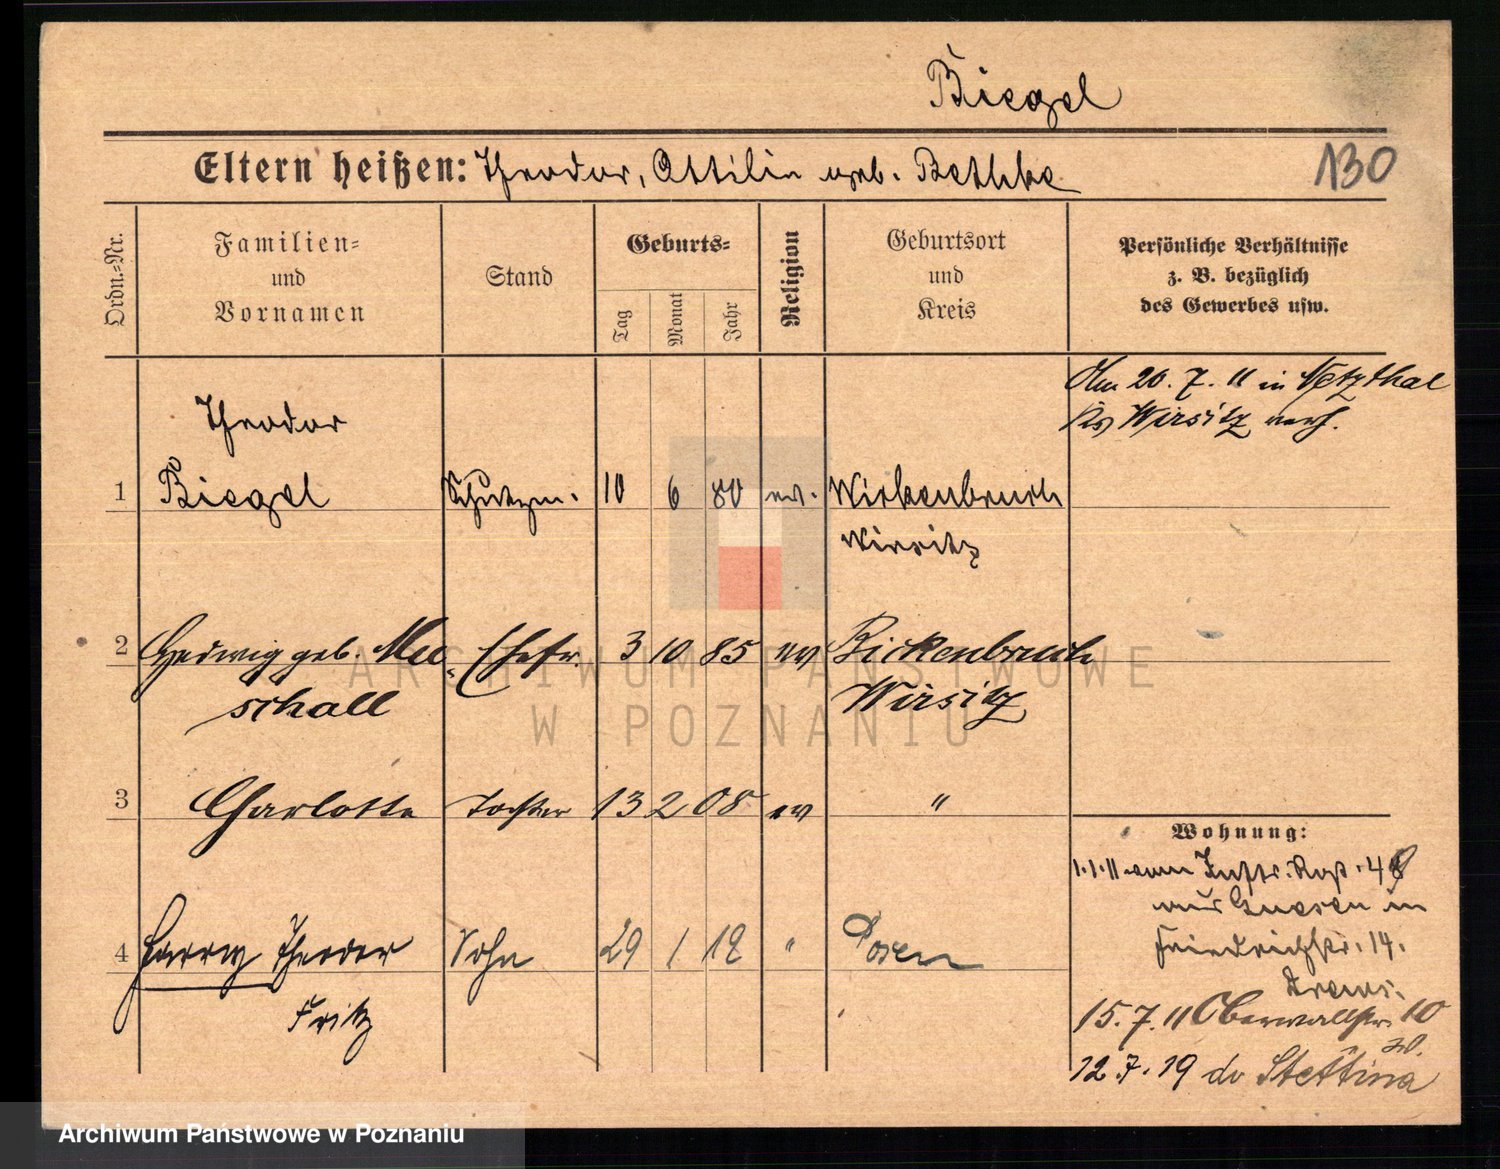 Biegel
Eltern heißen: Theodor, Ottilie geb. Bethke
130
Ordn.-Nr.
Familien-
und
Vornamen
Stand
Geburts-
Tag
Monat
Jahr
Religion
Geburtsort
und
Kreis
Persönliche Verhältnisse
z. B. bezüglich
des Gewerbes usw.
Am 20. 7. 11 in Netzthal
Krs Wirsitz verh.
Theodor
1 Biegel Schutzm. 10 6 80 ev. Wirkenbruch
Wirsitz
2 Hedwig geb. Mee- Ehefr. 3 10 85 ev Bickenbruch
schall Wirsitz
3 Charlotte Tochter 13 2 08 ev "
4 Harry Theodor Sohn 29 1 12 " Posen
Fritz
Wohnung:
1.1.11 vom 49
aus Gnesen in
Friedrichstr. 14.
15.7.11 Oberwallstr. 10
12.7.19 Stettin
ARCHIWUM PAŃSTWOWE
W POZNANIU
Archiwum Państwowe w Poznaniu